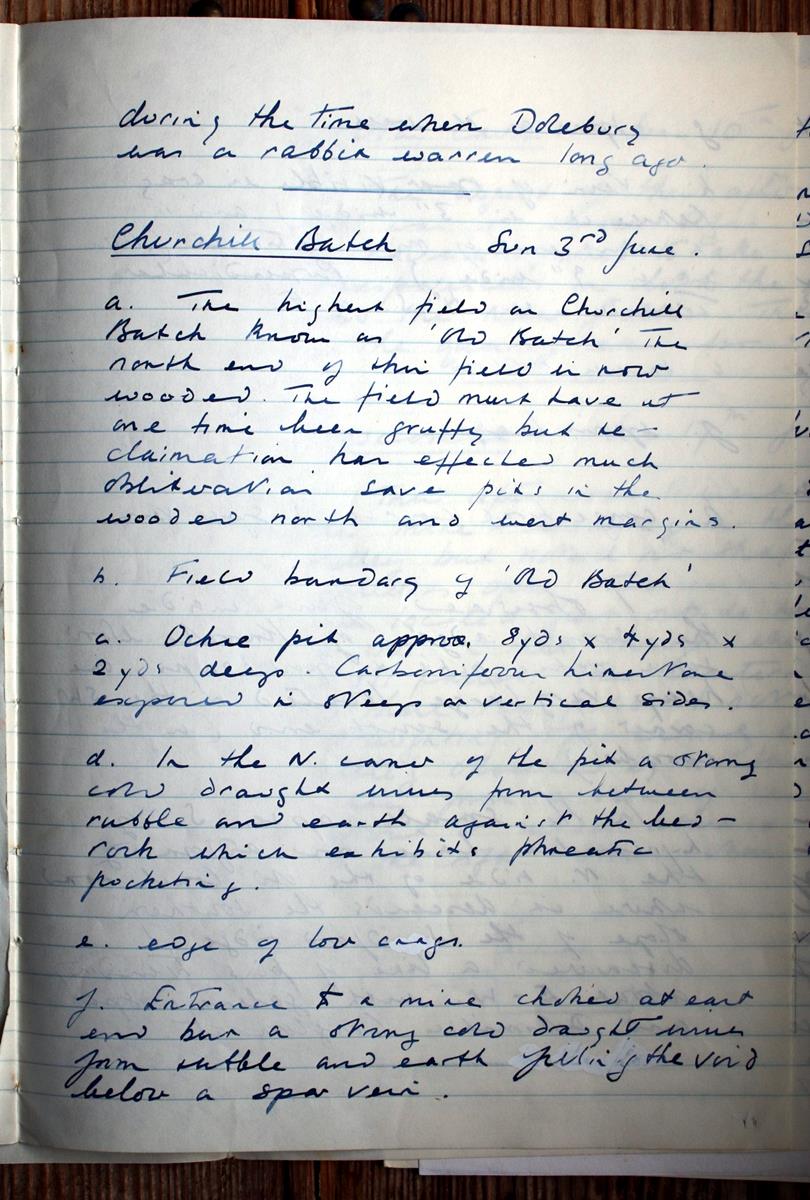 during the time when Dolebury
was a rabbit warren long ago.
Churchill Batch Sun 3rd June.
a. The highest field on Churchill
Batch known as 'Old Batch' The
north end of this field is now
wooded. The field must have at
one time been gruffy but re-
claimation has effected much
obliteration save pits in the
wooded north and west margins.
b. Field boundary of 'Old Batch'
c. Ochre pit approx. 8yds x 4yds x
2 yds deep. Carboniferous limestone
exposed in steep or vertical sides.
d. In the N. corner of the pit a strong
cold draught issues from between
rubble and earth against the bed-
rock which exhibits phreatic
pocketing.
e. edge of low crags.
f. Entrance to a mine choked at east
end but a strong cold draught issues
from rubble and earth filling the void
below a spar vein.